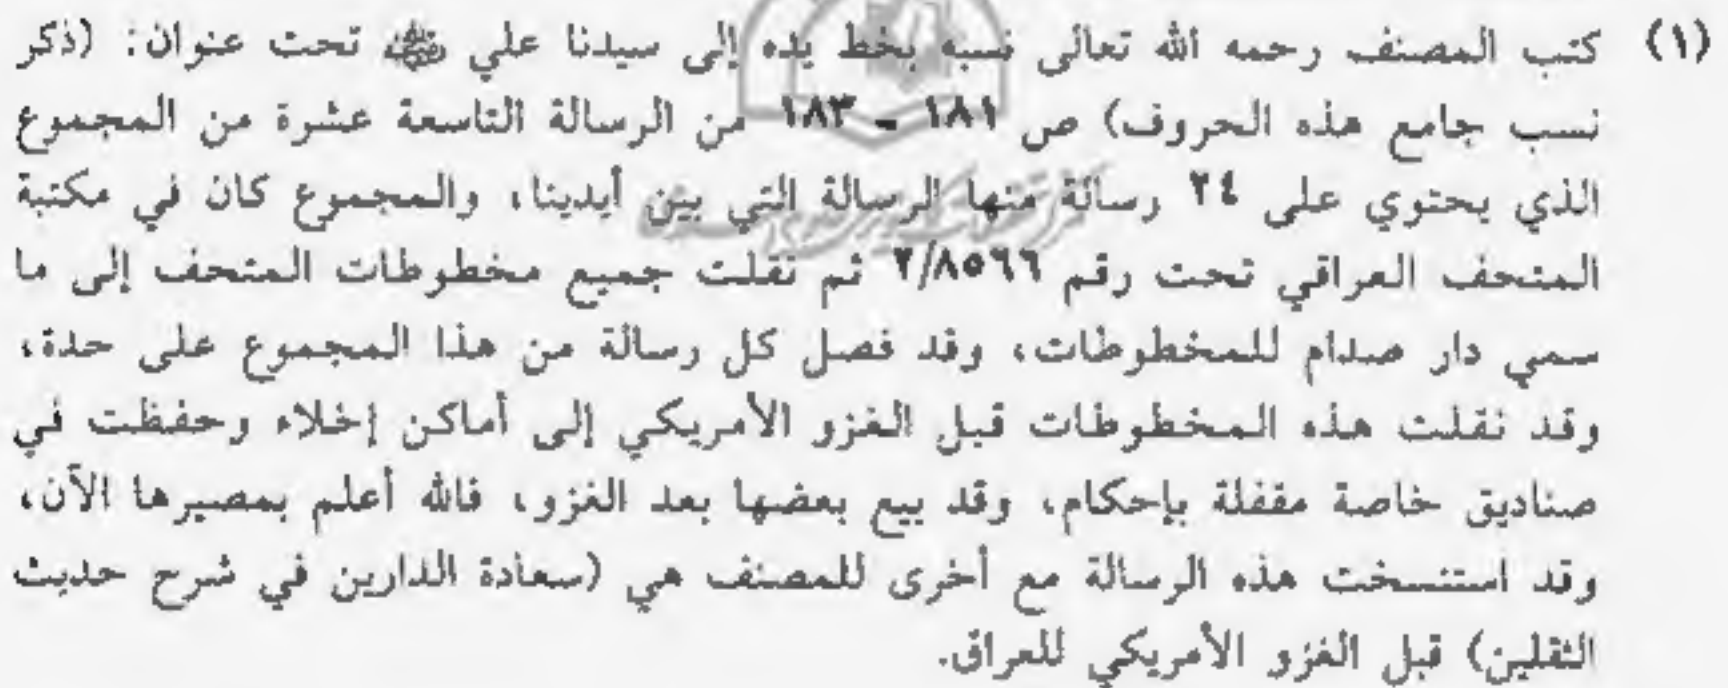 (١) كتب المصنف رحمه الله تعالى نسبه بخط يده إلى سيدنا علي ﷺ تحت عنوان: (ذكر
نسب جامع هذه الحروف) ص ١٨١ - ١٨٣ من الرسالة التاسعة عشرة من المجموع
الذي يحتوي على ٢٤ رسالة منها الرسالة التي بين أيدينا، والمجموع كان في مكتبة
المتحف العراقي تحت رقم ٢/٨٥٦٦ ثم نقلت جميع مخطوطات المتحف إلى ما
سمي دار صدام للمخطوطات، وقد فصل كل رسالة من هذا المجموع على حدة،
وقد نقلت هذه المخطوطات قبل الغزو الأمريكي إلى أماكن إخلاء وحفظت في
صناديق خاصة مقفلة بإحكام، وقد بيع بعضها بعد الغزو، فالله أعلم بمصيرها الآن،
وقد استنسخت هذه الرسالة مع أخرى للمصنف هي (سعادة الدارين في شرح حديث
الثقلين) قبل الغزو الأمريكي للعراق.